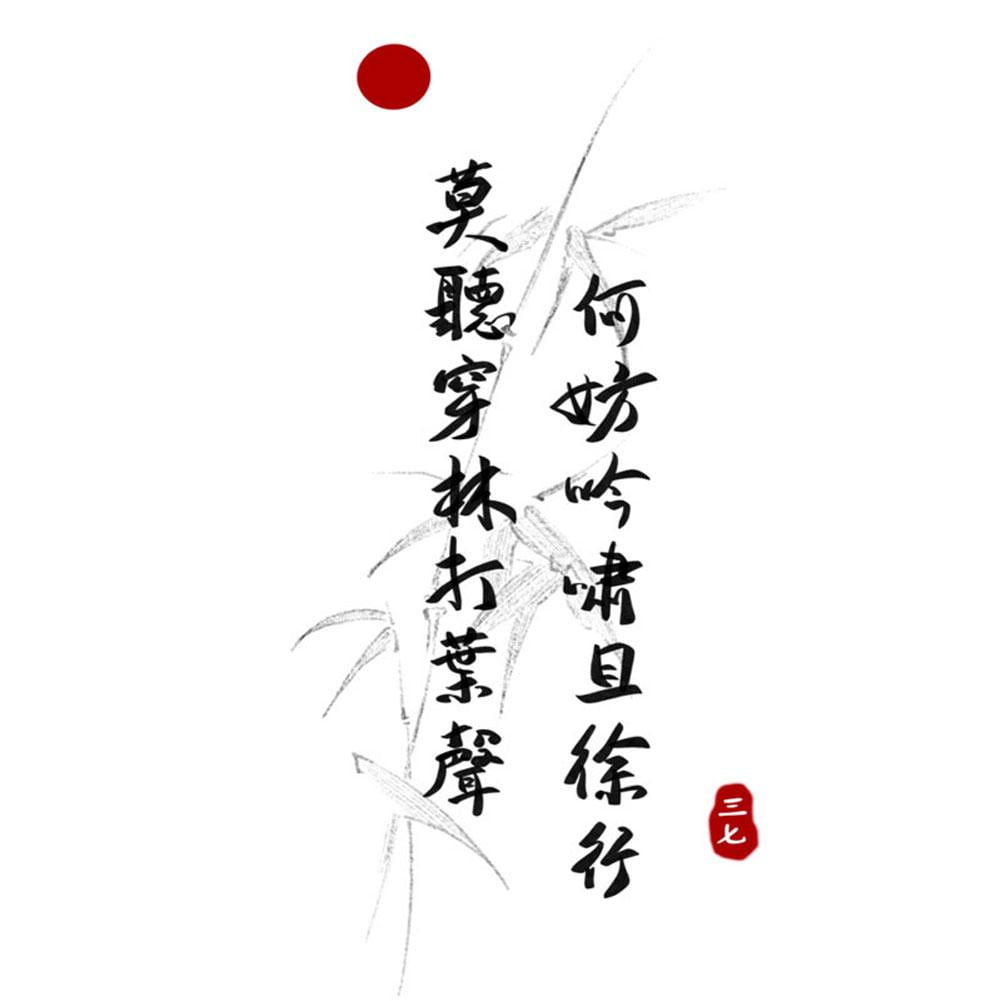 莫聽穿林打葉聲
何妨吟嘯且徐行
三七